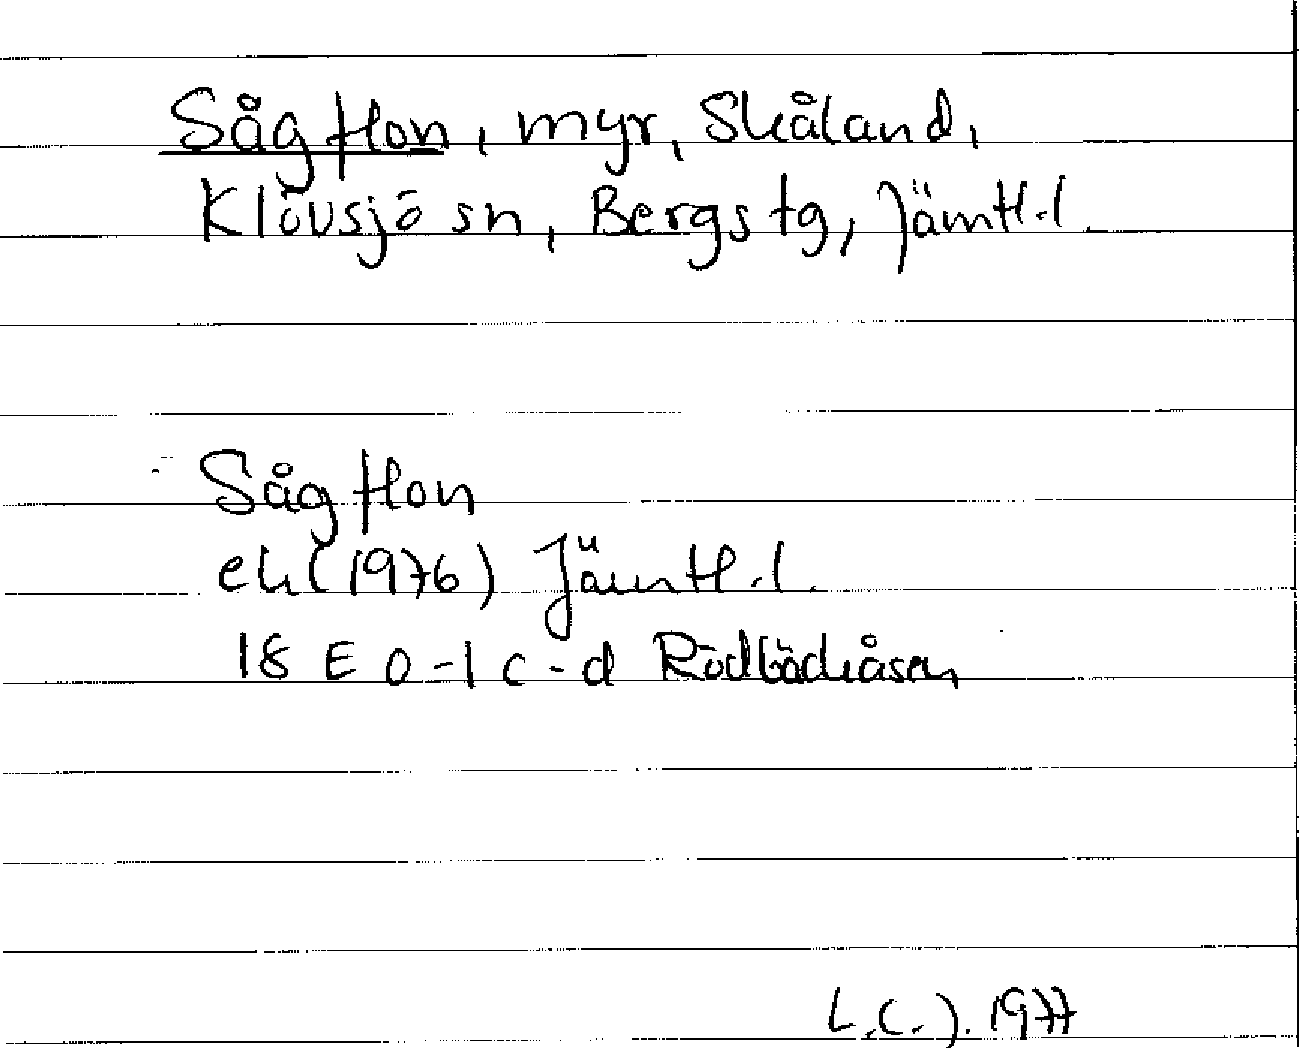 Sågflon, myr, Skåland,
Klövsjö sn, Bergs tg, Jämtl.l
Sågflon
ek (1976) Jämtl.l.
18 E 0-1 c-d Rödbäckåsen
L.C.J. 1977